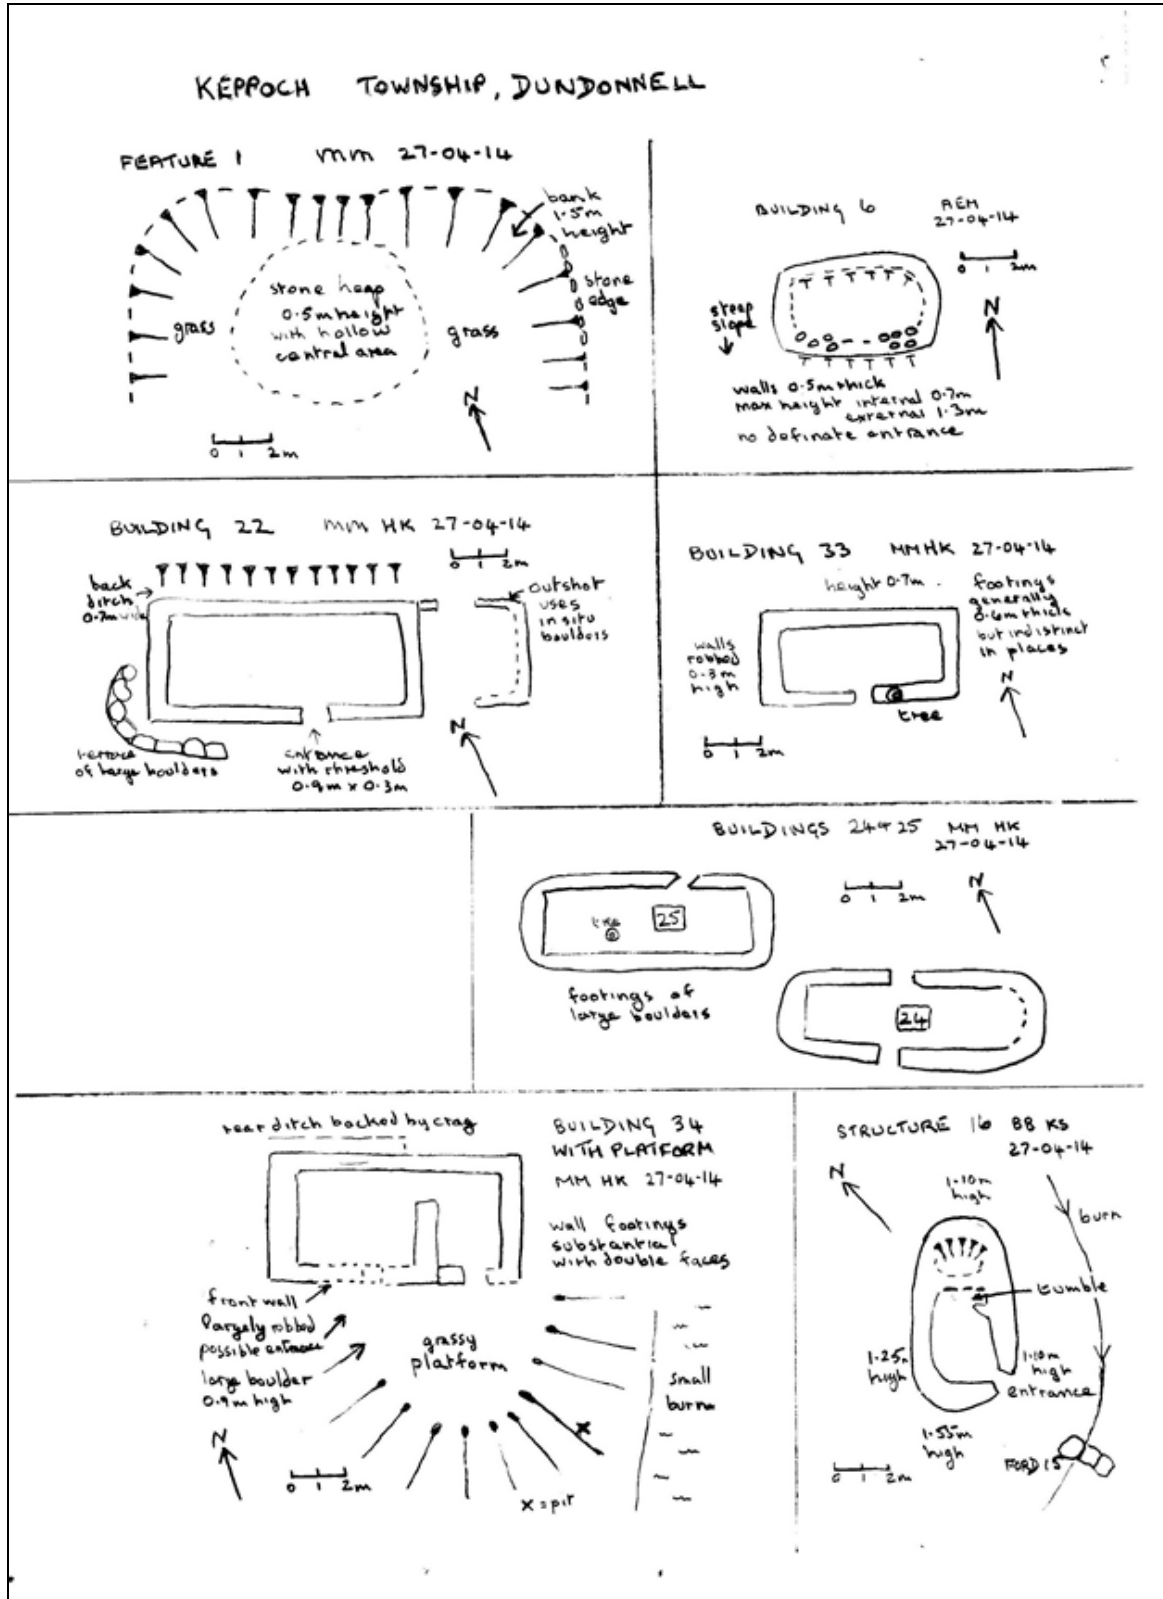 KEPPOCH TOWNSHIP, DUNDONNELL
FEATURE 1 MM 27-04-14
bank
1.5m
height
stone
edge
stone heap
0.5m height
with hollow
central area
grass
grass
N
0 1 2m
BUILDING 6 AEM
27-04-14
0 1 2m
N
steep
slope
walls 0.5m thick
max height internal 0.7m
external 1.3m
no definate entrance
BUILDING 22 MM HK 27-04-14
0 1 2m
back
ditch
0.7m wide
outshot
uses
in situ
boulders
N
terrace
of large boulders
entrance
with threshold
0.9m x 0.3m
BUILDING 33 MM HK 27-04-14
height 0.7m.
footings
generally
0.6m thick
but indistinct
in places
walls
robbed
0.3m
high
tree
N
0 1 2m
BUILDINGS 24+25 MM HK
27-04-14
0 1 2m
N
tree
25
footings of
large boulders
24
rear ditch backed by crag
BUILDING 34
WITH PLATFORM
MM HK 27-04-14
wall footings
substantial
with double faces
front wall
largely robbed
possible entrance
large boulder
0.9m high
grassy
platform
small
burn
N
0 1 2m
x
x = pit
STRUCTURE 16 BB KS
27-04-14
N
1.10m
high
burn
tumble
1.25m
high
1.10m
high
entrance
1.55m
high
0 1 2m
FORD 15